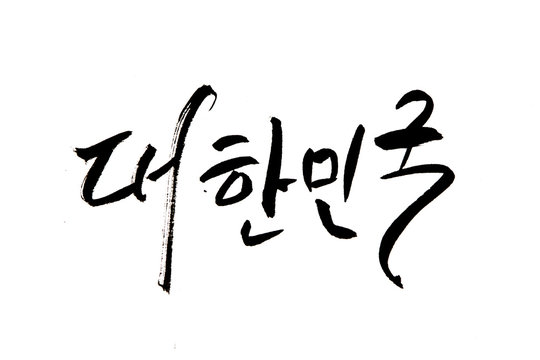 대한민국